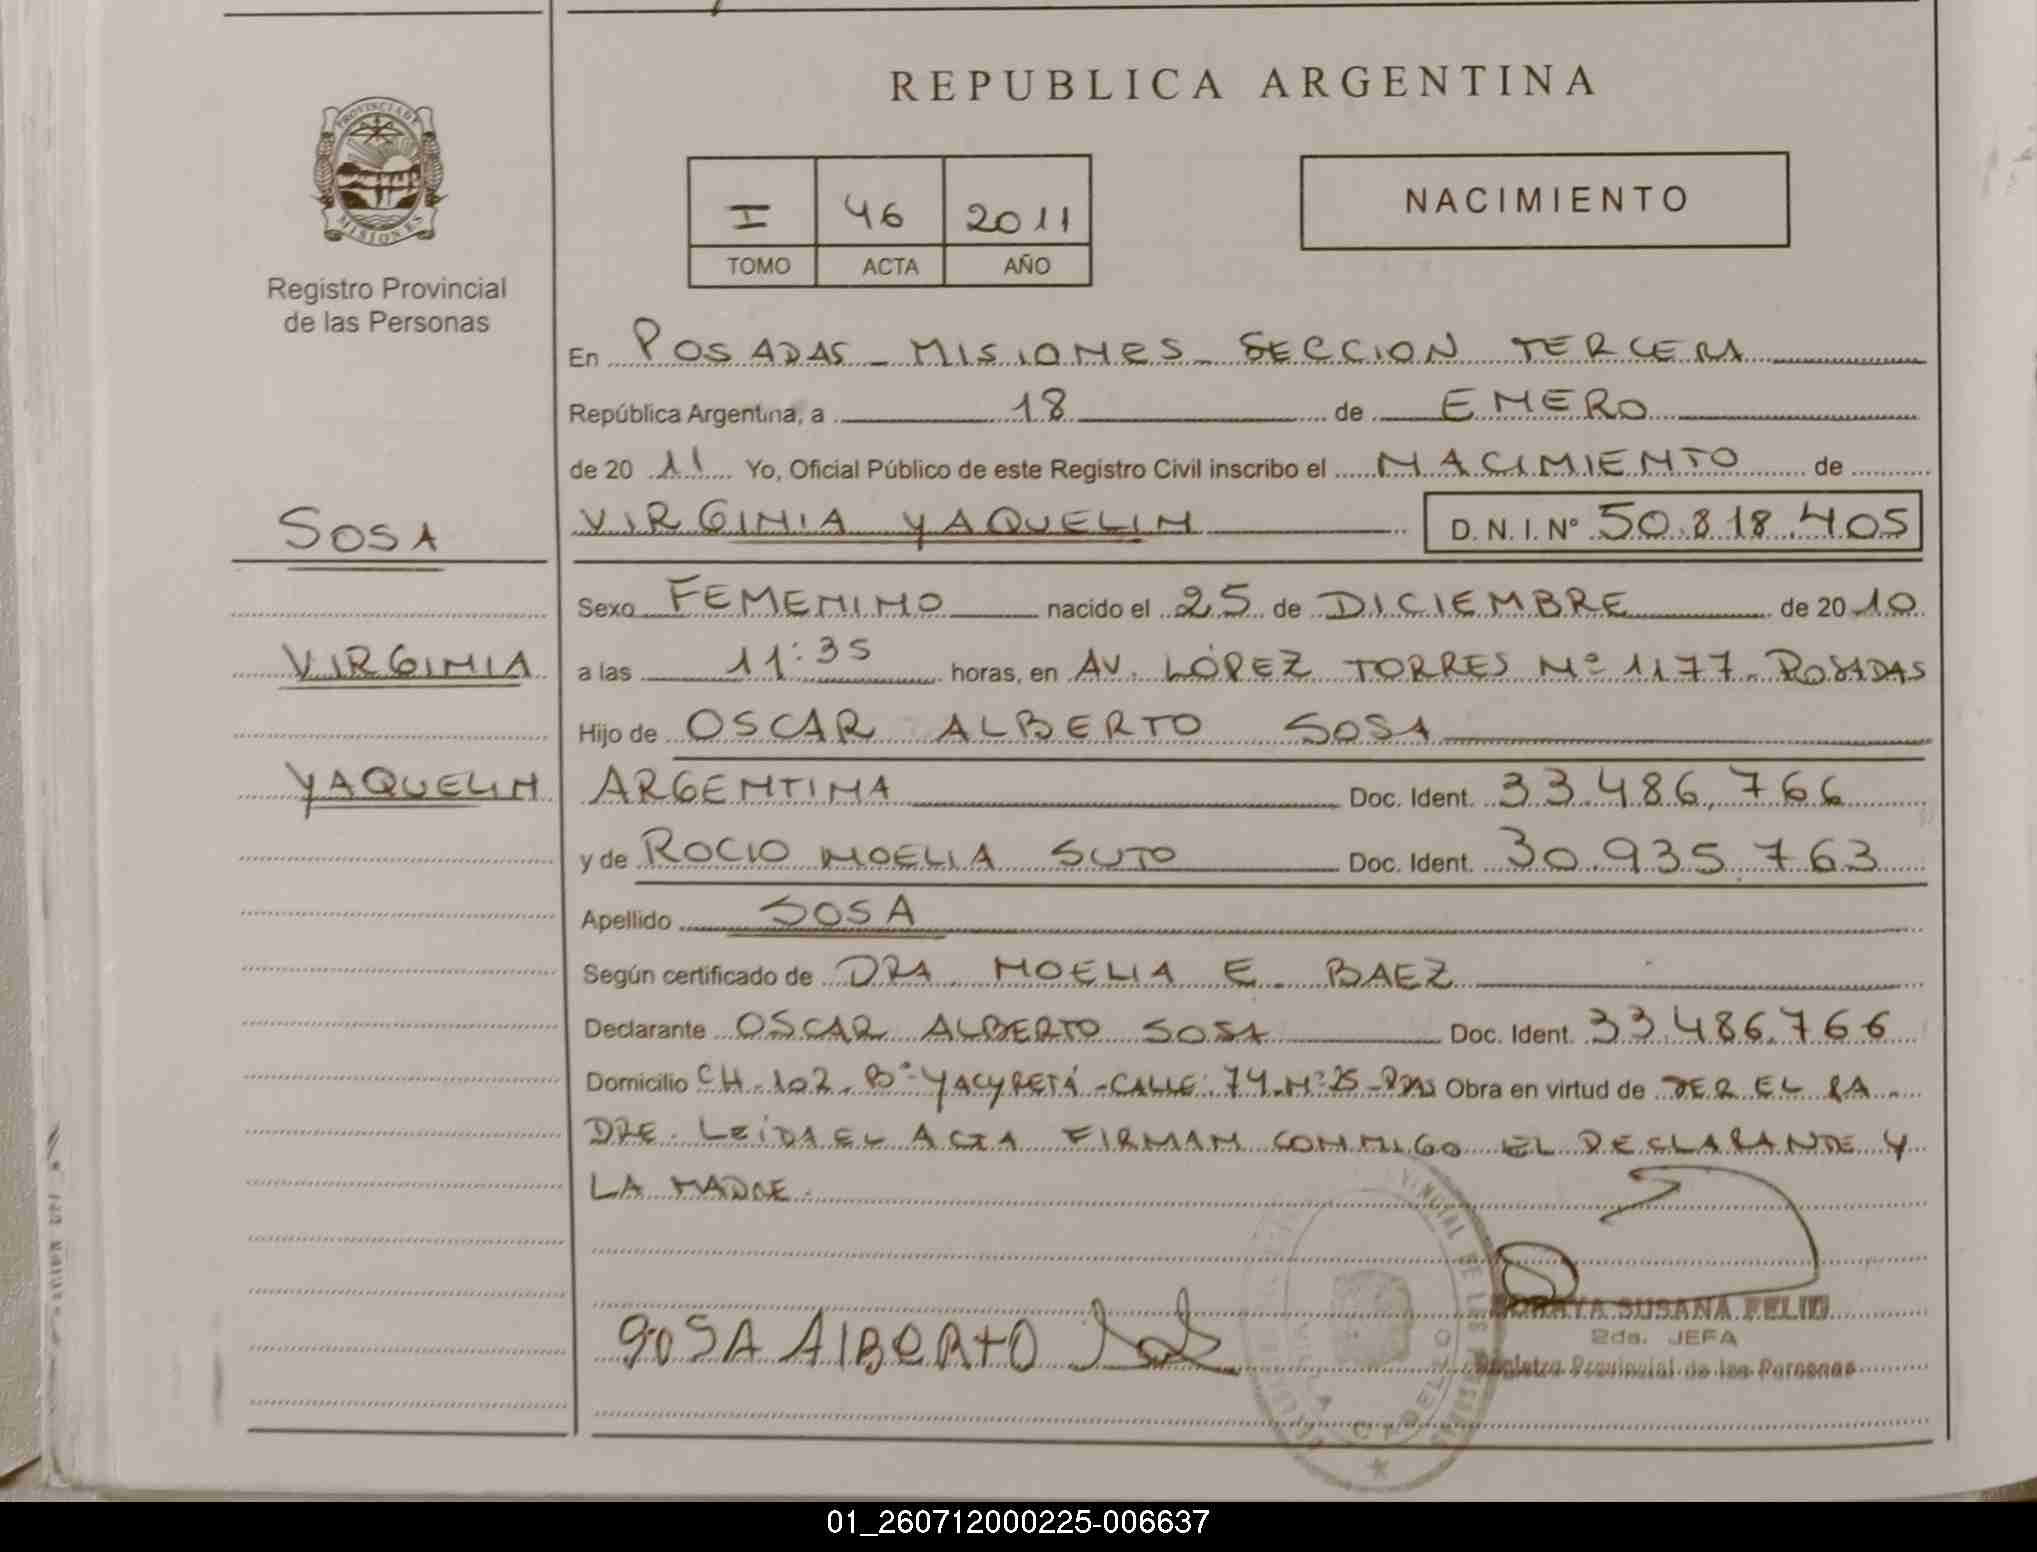 REPUBLICA ARGENTINA
PROVINCIA DE
MISIONES
Registro Provincial
de las Personas
I 46 2011
TOMO ACTA AÑO
NACIMIENTO
En POSADAS - MISIONES - SECCION TERCERA
República Argentina, a 18 de ENERO
de 20 11 Yo, Oficial Público de este Registro Civil inscribo el NACIMIENTO de
SOSA
VIRGINIA YAQUELIN D. N. I. Nº 50.818.405
Sexo FEMENINO nacido el 25 de DICIEMBRE de 20 10
VIRGINIA
a las 11:35 horas, en AV. LÓPEZ TORRES Nº 1177 - POSADAS
Hijo de OSCAR ALBERTO SOSA
YAQUELIN
ARGENTINA Doc. Ident. 33.486.766
y de ROCIO NOELIA SUTO Doc. Ident. 30.935.763
Apellido SOSA
Según certificado de DRA NOELIA E. BAEZ
Declarante OSCAR ALBERTO SOSA Doc. Ident. 33.486.766
Domicilio CH. 102. Bº YACYRETÁ - CALLE: 74. Nº 25 - Obra en virtud de SER EL PA
DRE. LEÍDA EL ACTA FIRMAN CONMIGO EL DECLARANTE Y
LA MADRE.
SOSA AlBERTO
SORAYA SUSANA FELIU
2da. JEFA
Registro Provincial de las Personas
01_260712000225-006637